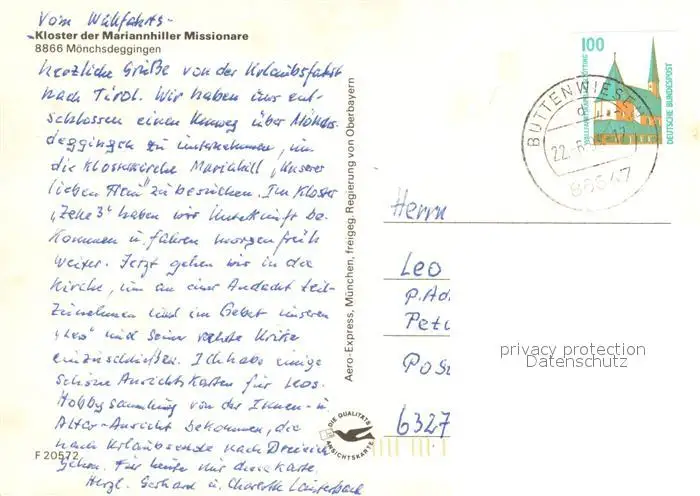 Vom Wallfahrts-
Kloster der Mariannhiller Missionare
8866 Mönchsdeggingen
herzliche Grüße von der Urlaubsfahrt
nach Tirol. Wir haben uns ent-
schlossen einen Umweg über Mönchs-
deggingen zu unternehmen, um
die Klosterkirche Mariahill „Unserer
lieben Frau" zu besuchen. Im Kloster
„Zelle 3" haben wir Unterkunft be-
kommen u. fahren morgen früh
weiter. Jetzt gehen wir in die
Kirche, um an einer Andacht teil-
zunehmen und im Gebet unseren
„Leo" und seine
einzuschließen. Ich habe einige
schöne Ansichtskarten für Leos
Hobbysammlung von der Innen- u.
Altar-Ansicht bekommen, die
nach Urlaubsende nach Dreieich
gehen. Für heute nur diese Karte.
Herzl. Gerhard u. Charlotte
F 20572
Aero-Express, München, freigeg. Regierung von Oberbayern
DIE QUALITÄTS
ANSICHTSKARTE
100
DEUTSCHE BUNDESPOST
BUTTENWIESEN
d
22.
86647
Herrn
Leo
P.Ad
Pete
Pos
6327
privacy protection
Datenschutz